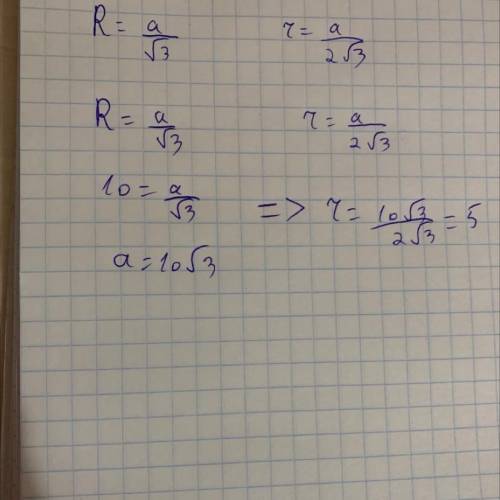 R = a/√3    r = a/2√3
R = a/√3    r = a/2√3
10 = a/√3 => r = 10√3/2√3 = 5
a = 10√3